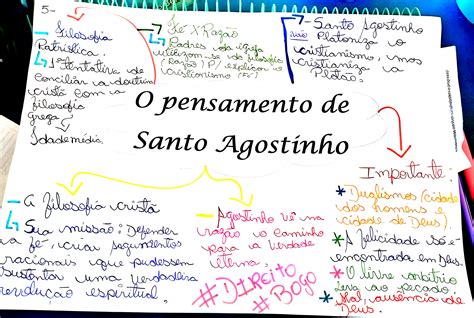 5-
Filosofia
Patrística.
1ª tentativa de
conciliar a doutrina
cristã com a
filosofia
grega.
Idade média.
Fé X Razão
Padres da igreja
utilizam-se da filosofia
(razão) p/ explicar o
cristianismo (Fé)
Santo Agostinho
não Platoniza o
cristianismo, mas
cristianiza a
Platão.
O pensamento de
Santo Agostinho
A filosofia cristã
Sua missão: Defender
a fé, criar argumentos
racionais que pudessem
sustentar uma verdadeira
revolução espiritual.
Agostinho vê na
razão o caminho
para a verdade
eterna.
#DIREITO
#BOGO
Importante:
* Dualismos (cidade
dos homens e
cidade de Deus).
* A felicidade só é
encontrada em Deus.
* O livre arbítrio
leva ao pecado.
* Mal, ausência de
Deus.